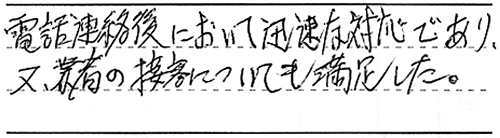 電話連絡後において迅速な対応であり、
又、業者の接客についても満足した。